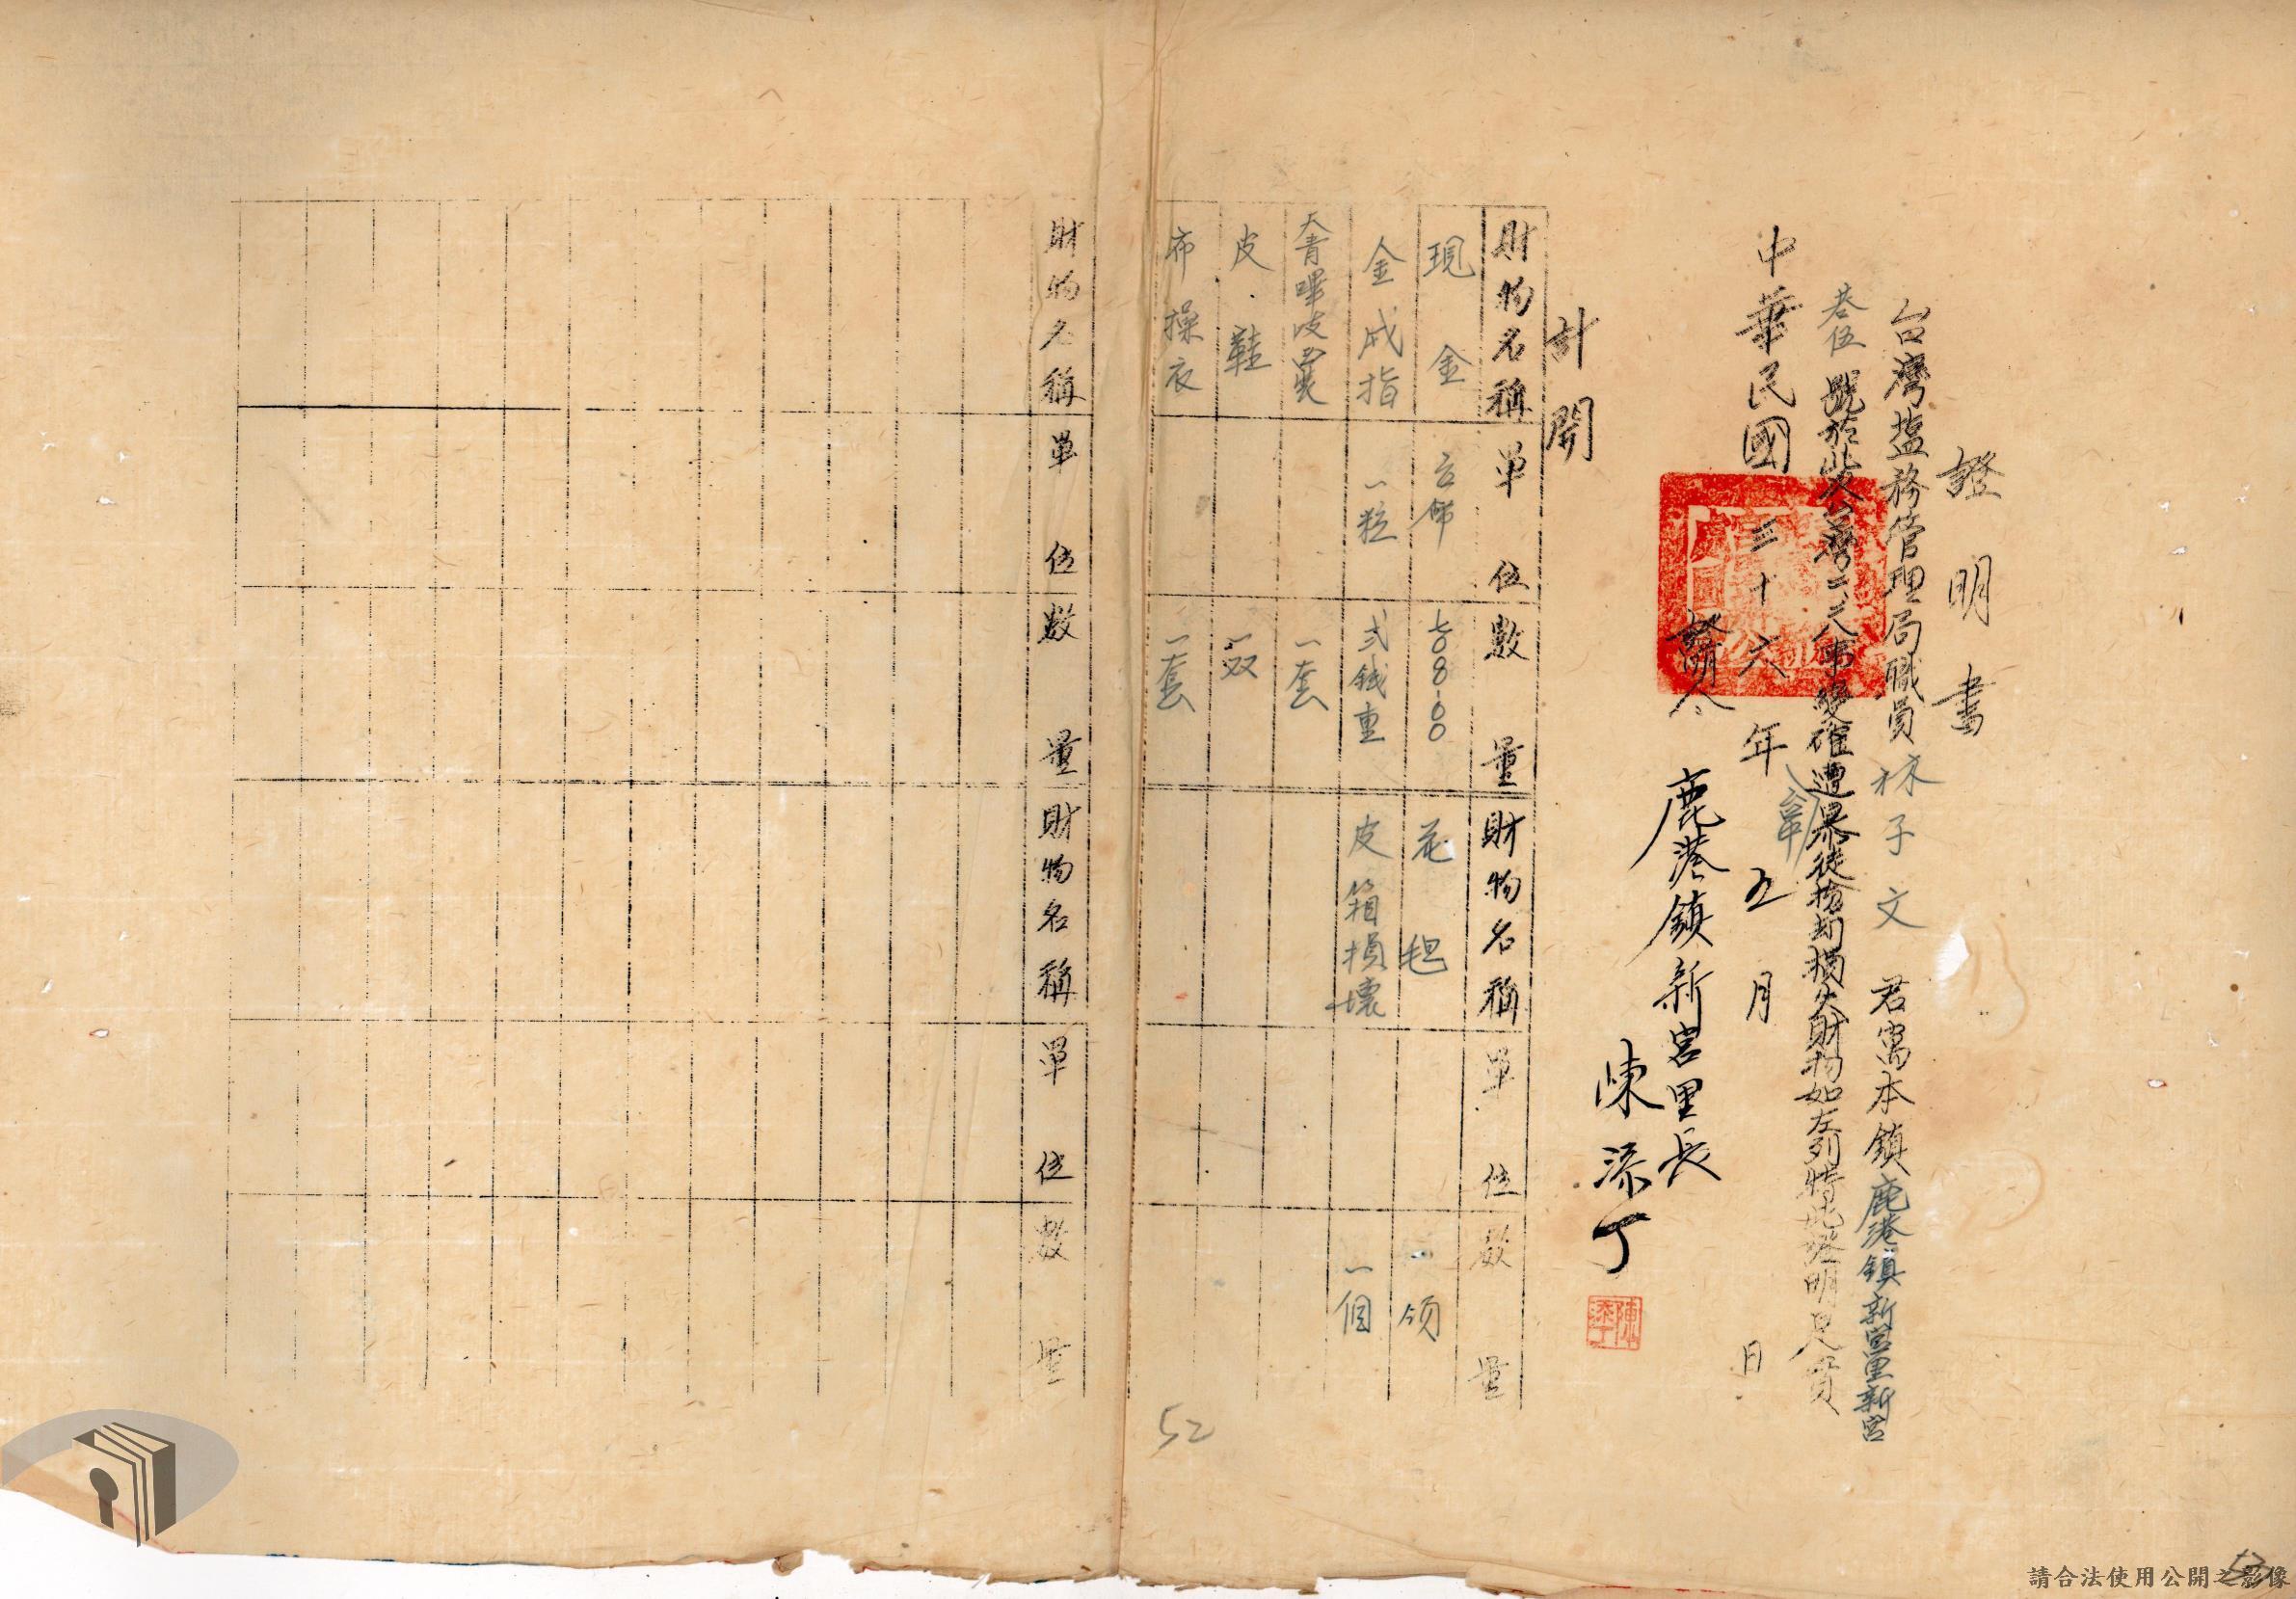 證明書
台灣塩務管理局職員林子文君寓本鎮鹿港鎮新宮里新宮
叁伍號於此次台灣二二八事變確遭暴徒搶刧損失財物如左列特此證明是實
中華民國三十六年五月日
證明人
鹿港鎮新宮里長
陳添丁
陳添丁
計開
財物名稱 單位 數量 財物名稱 單位 數量
現金 台幣 花毯 一領
金戒指 一粒 弍錢重 皮箱損壞 一個
大青嗶吱西裝 一套
皮鞋 一双
布操衣 一套
財物名稱 單位 數量 財物名稱 單位 數量
52
請合法使用公開之影像